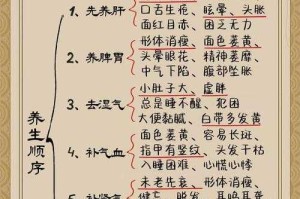 养生顺序
1、先养肝
口舌生疮、眩晕、头胀
面红目赤、困乏无力
2、养脾胃
形体消瘦、面色萎黄
头晕眼花、精神萎靡
中气下陷、腹部坠胀
3、去湿气
小肚子大、虚胖
总是睡不醒、犯困
大便黏腻、白带多发黄
4、补气血
面色萎黄、容易长斑
指甲有竖纹、头发干枯
入睡困难、心慌心悸
未老先衰、形体消瘦